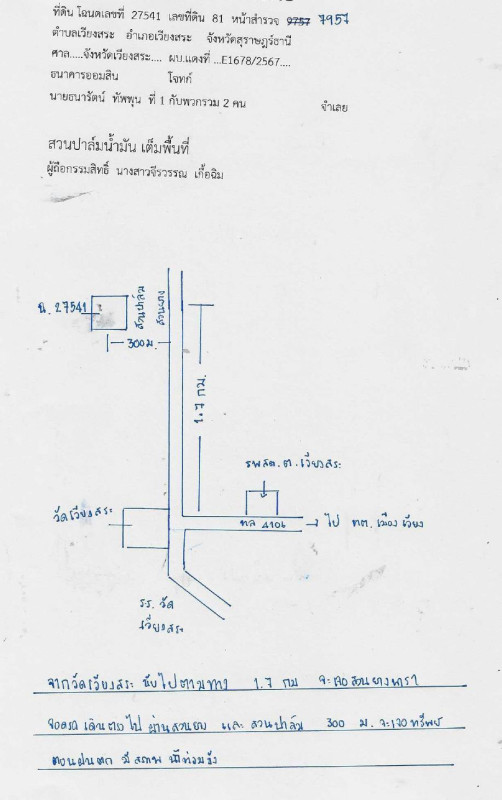 ที่ดิน โฉนดเลขที่ 27541 เลขที่ดิน 81 หน้าสำรวจ 9757 7957
ตำบลเวียงสระ อำเภอเวียงสระ จังหวัดสุราษฎร์ธานี
ศาล.....จังหวัดเวียงสระ.... ผบ.แดงที่ ...E1678/2567....
ธนาคารออมสิน โจทก์
นายธนารัตน์ ทัพพุน ที่ 1 กับพวกรวม 2 คน จำเลย
สวนปาล์มน้ำมัน เต็มพื้นที่
ผู้ถือกรรมสิทธิ์ นางสาวจีรวรรณ เกื้อฉิม
น. 27541
สวนปาล์ม
สวนยาง
300 ม.
1.7 กม.
รพสต. ต. เวียงสระ
วัดเวียงสระ
ทล 4106
ไป ทต. เมืองเวียง
รร. วัด
เวียงสระ
จากวัดเวียงสระ ขับไปตามทาง 1.7 กม จะเจอสวนยางพารา
จอดรถ เดินตรงไป ผ่านสวนยาง และ สวนปาล์ม 300 ม. จะเจอทรัพย์
ตอนฝนตก มีสภาพ น้ำท่วมขัง